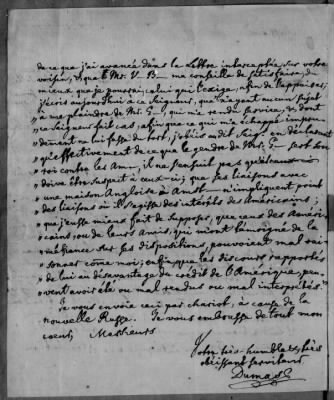 de ce que j'ai avancé dans la Lettre interceptée sur votre
voisin, & que Mr. V. B— me conseille de satisfaire, du
mieux que je pourrai, celui qui l'exige, afin de l'appaiser,
j'écris aujourd'hui à ce Seigneur, que n'ayant aucun sujet
" de me plaindre de Mr. G—, qui m'a rendu service, & dont
" ce Seigneur fait cas, afin que ce qui m'a échappé impru-
" demment ne lui fasse du tort, j'obéis audit Seigr. en déclarant
" qu'effectivement de ce que le gendre de Mr. G— sert son
" roi contre les Am—, il ne s'ensuit pas qu'
" doive être suspect à ceux-ci; que ses liaisons avec
" une maison Angloise à Amst— n'impliquent point
" des liaisons où il s'agisse des intérêts des Américains;
" que j'eusse mieux fait de supposer, que ceux des Améri-
" cains, ou de leurs Amis, qui m'ont témoigné de la
" méfiance sur ses dispositions, pouvoient mal rai-
" sonner come moi; enfin, que les discours rapportés
" de lui au désavantage du crédit de l'Amérique, peu-
" vent avoir été ou mal rendus ou mal interprétés."
Je vous envoie ceci par chariot, à cause de la
nouvelle Ruse. Je vous embrasse de tout mon
coeur, Messieurs
Votre très-humble & très
obéissant serviteur
Dumas